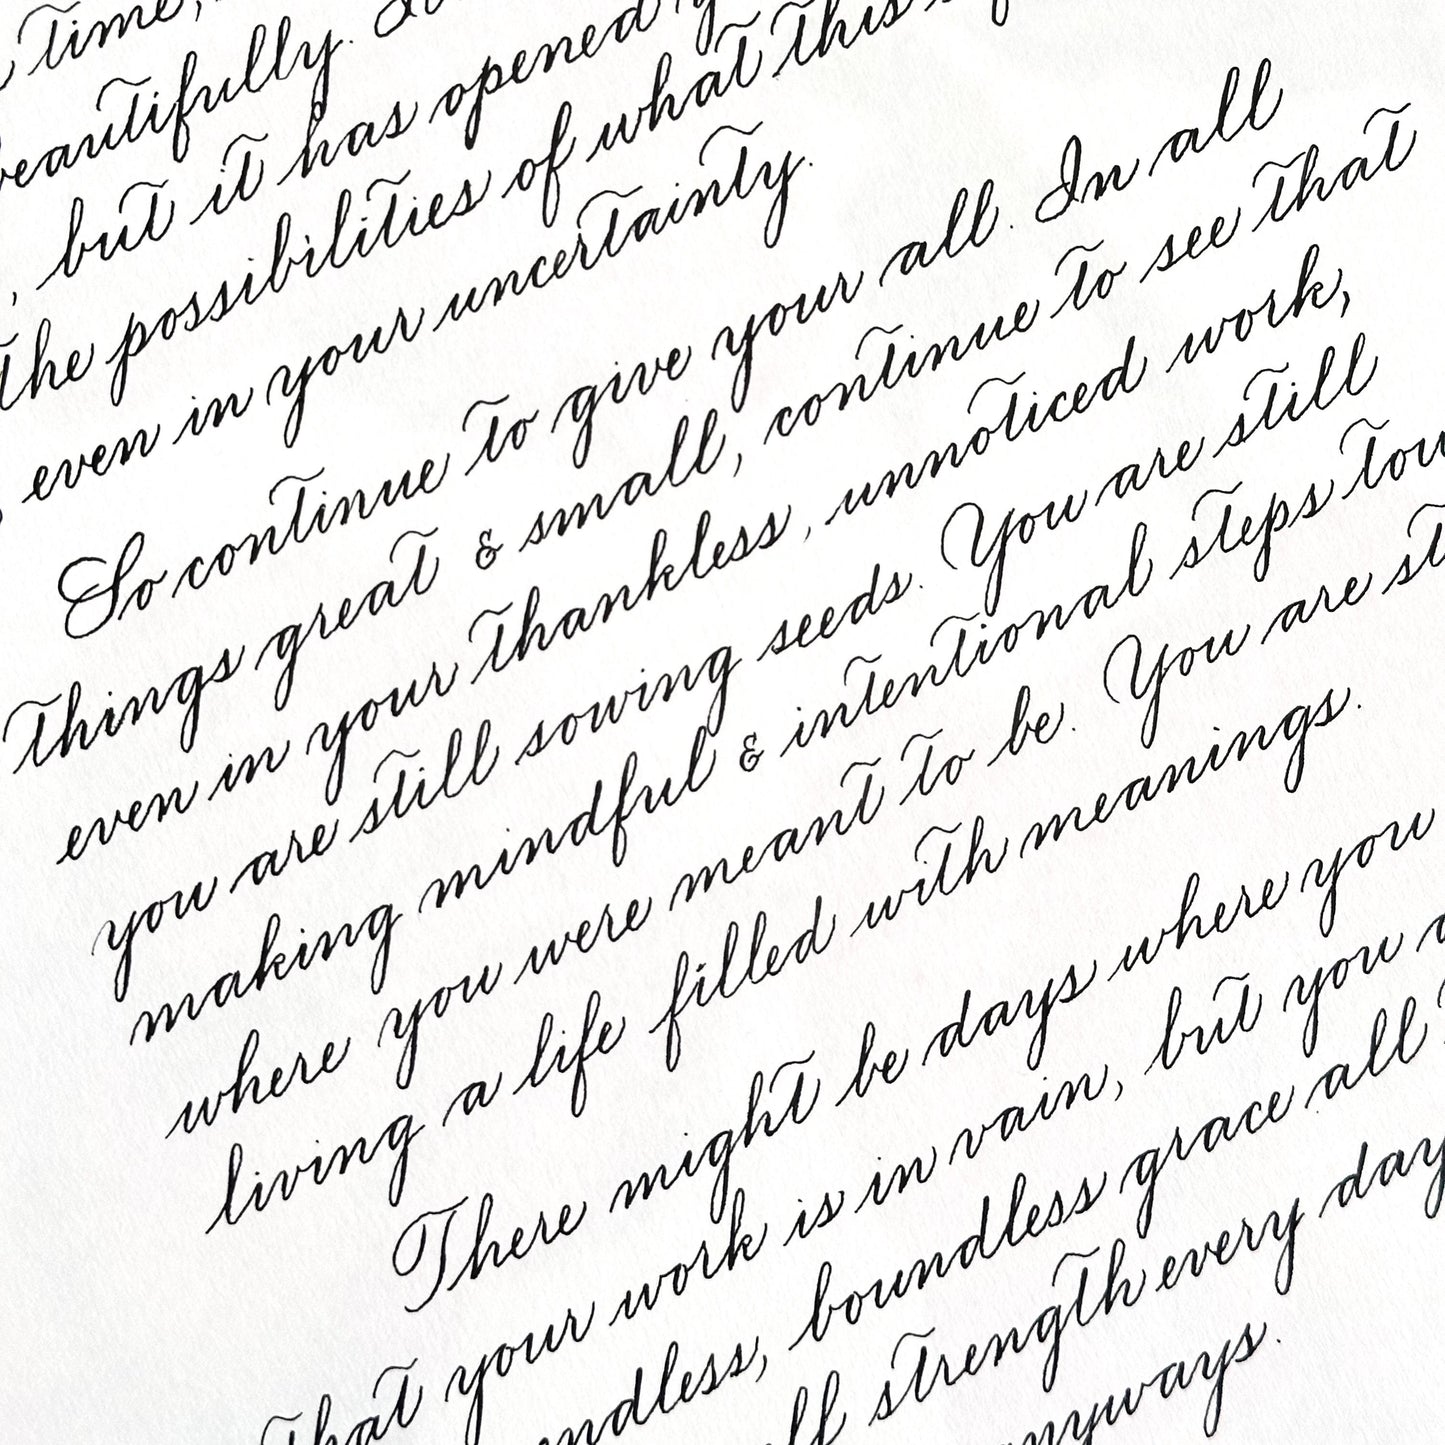 time,
beautifully.
, but it has opened
the possibilities of what this
even in your uncertainty.
So continue to give your all. In all
things great & small, continue to see that
even in your thankless, unnoticed work,
you are still sowing seeds. You are still
making mindful & intentional steps
where you were meant to be. You are
living a life filled with meanings.
There might be days where you
that your work is in vain, but you
boundless grace all
strength every day
anyways.